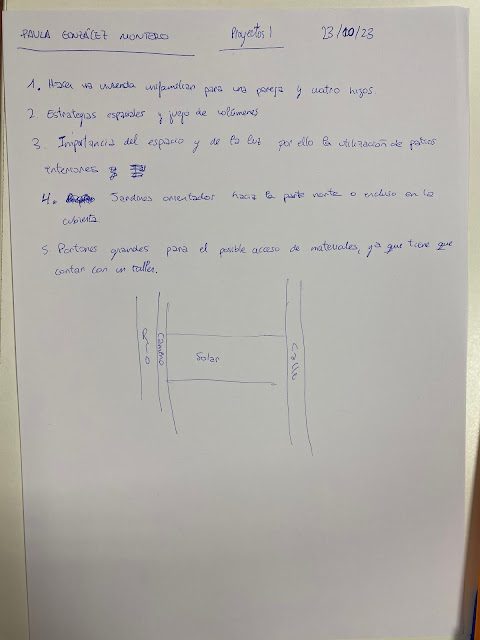 PAULA GONZÁLEZ MONTERO Proyectos 1 23/10/23
1. Hacer una vivienda unifamiliar para una pareja y cuatro hijos.
2. Estrategias espaciales y juego de volúmenes
3. Importancia del espacio y de la luz por ello la utilización de patios
interiores y
4. Jardines orientados hacia la parte norte o incluso en la
cubierta.
5. Portones grandes para el posible acceso de materiales, ya que tiene que
contar con un taller.
Río
Camino
Solar
Calle